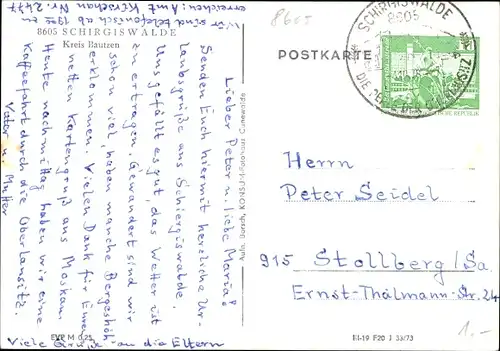 Wir sind telefonisch ab 1900 zu
erreichen: Amt Kirschau Nr. 2477
8605 SCHIRGISWALDE
Kreis Bautzen
Lieber Peter u. liebe Maria!
Senden Euch hiermit herzliche Ur-
laubsgrüße aus Schirgiswalde.
Uns gefällt es gut, das Wetter ist
zu ertragen. Gewandert sind wir
schon viel, haben manche Bergeshöh
erklommen. Vielen Dank für Euren
netten Kartengruß aus Moskau.
Heute nachmittag haben wir eine
Kaffeefahrt durch die Oberlausitz.
Vater u. Mutter
Viele Grüße an die Eltern
EVP M 0,25
Aufn. Darsch, KONSUM-Fotohaus Cunewalde
8605
POSTKARTE
SCHIRGISWALDE
8605
DIE PERLE DER OBERLAUSITZ
Herrn
Peter Seidel
915 Stollberg/Sa.
Ernst-Thälmann-Str. 24
III-19 F20 J 33/73
1.-